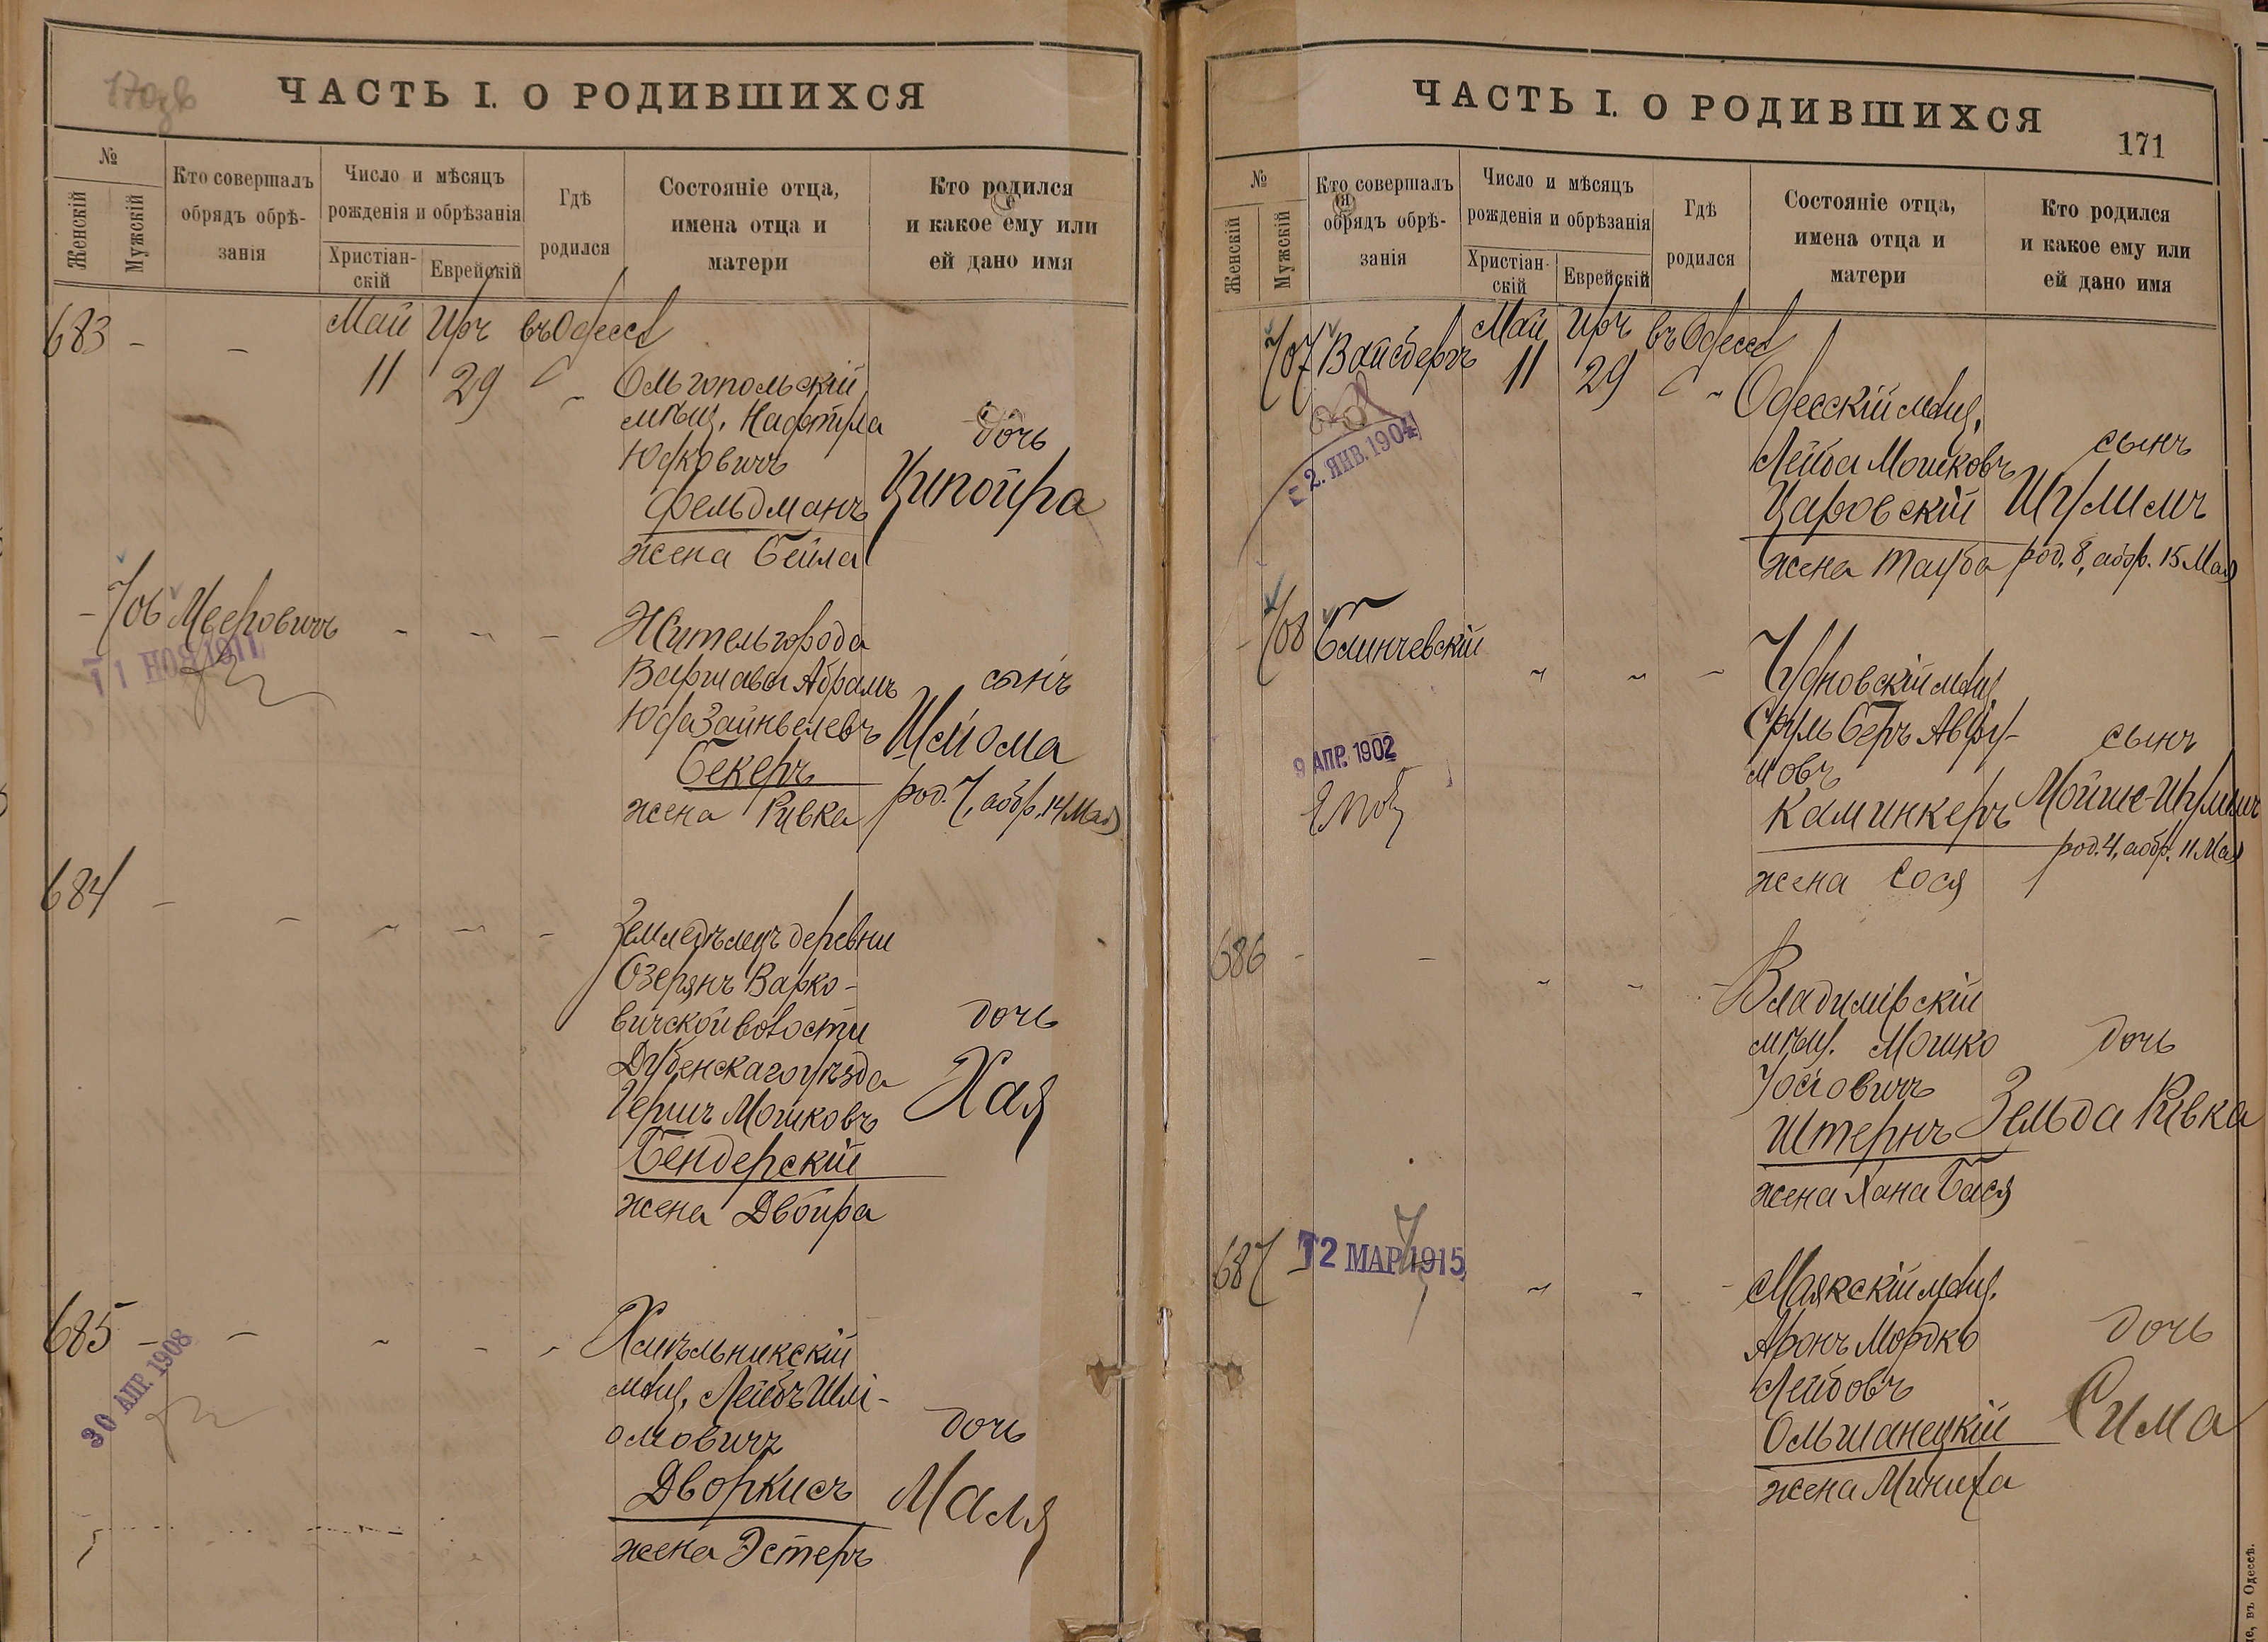 ЧАСТЬ I. О РОДИВШИХСЯ
№
Женскій
Мужскій
Кто совершалъ
обрядъ обрѣ-
занія
Число и мѣсяцъ
рожденія и обрѣзанія
Христіан-
скій
Еврейскій
Гдѣ
родился
Состояніе отца,
имена отца и
матери
Кто родился
и какое ему или
ей дано имя
683 - -
Май Иръ въ Одессѣ
11 29
Ольгопольскій
мѣщ. Нафтула
Юдковичъ
Фельдманъ
жена Бейла
дочь
Ципойра
- 706 Мееровичъ
11 НОЯ 1911
Житель города
Варшавы Абрамъ
Юда Зайнвелевъ
Бекеръ
жена Ривка
сынъ
Шейома
род. 7, аобр. 14 Мая
684 - -
Земледѣлецъ деревни
Озерянъ Варко-
вичской волости
Дубенскаго уѣзда
Гершъ Мошковъ
Бендерскій
жена Двойра
дочь
Хая
685 - -
30 АПР. 1908
Хмѣльникскій
мѣщ. Лейбъ Шлі-
омовичъ
Дворкисъ
жена Эстеръ
дочь
Маля
ЧАСТЬ I. О РОДИВШИХСЯ
171
№
Женскій
Мужскій
Кто совершалъ
обрядъ обрѣ-
занія
Число и мѣсяцъ
рожденія и обрѣзанія
Христіан-
скій
Еврейскій
Гдѣ
родился
Состояніе отца,
имена отца и
матери
Кто родился
и какое ему или
ей дано имя
707 Вайсбергъ
Май Иръ въ Одессѣ
11 29
2. ЯНВ. 1904
Одесскій мѣщ.
Лейба Мошковъ
Царовскій
жена Тауба
сынъ
Шулимъ
род. 8, аобр. 15 Мая
- 708 Блинчевскій
9 АПР. 1902
Чудновскій мѣщ
Сруль Беръ Авру-
мовъ
Каминкеръ
жена Сося
сынъ
Мойше-Шулимъ
род. 4, аобр. 11 Мая
686 - -
Владимірскій
мѣщ. Мошко
Іосіовичъ
Штернъ
жена Хана Бася
дочь
Зельда Ривка
687
12 МАР 1915
Маякскій мѣщ.
Аронъ Мордко
Лейбовъ
Ольшанецкій
жена Миниха
дочь
Сима
въ Одессѣ.